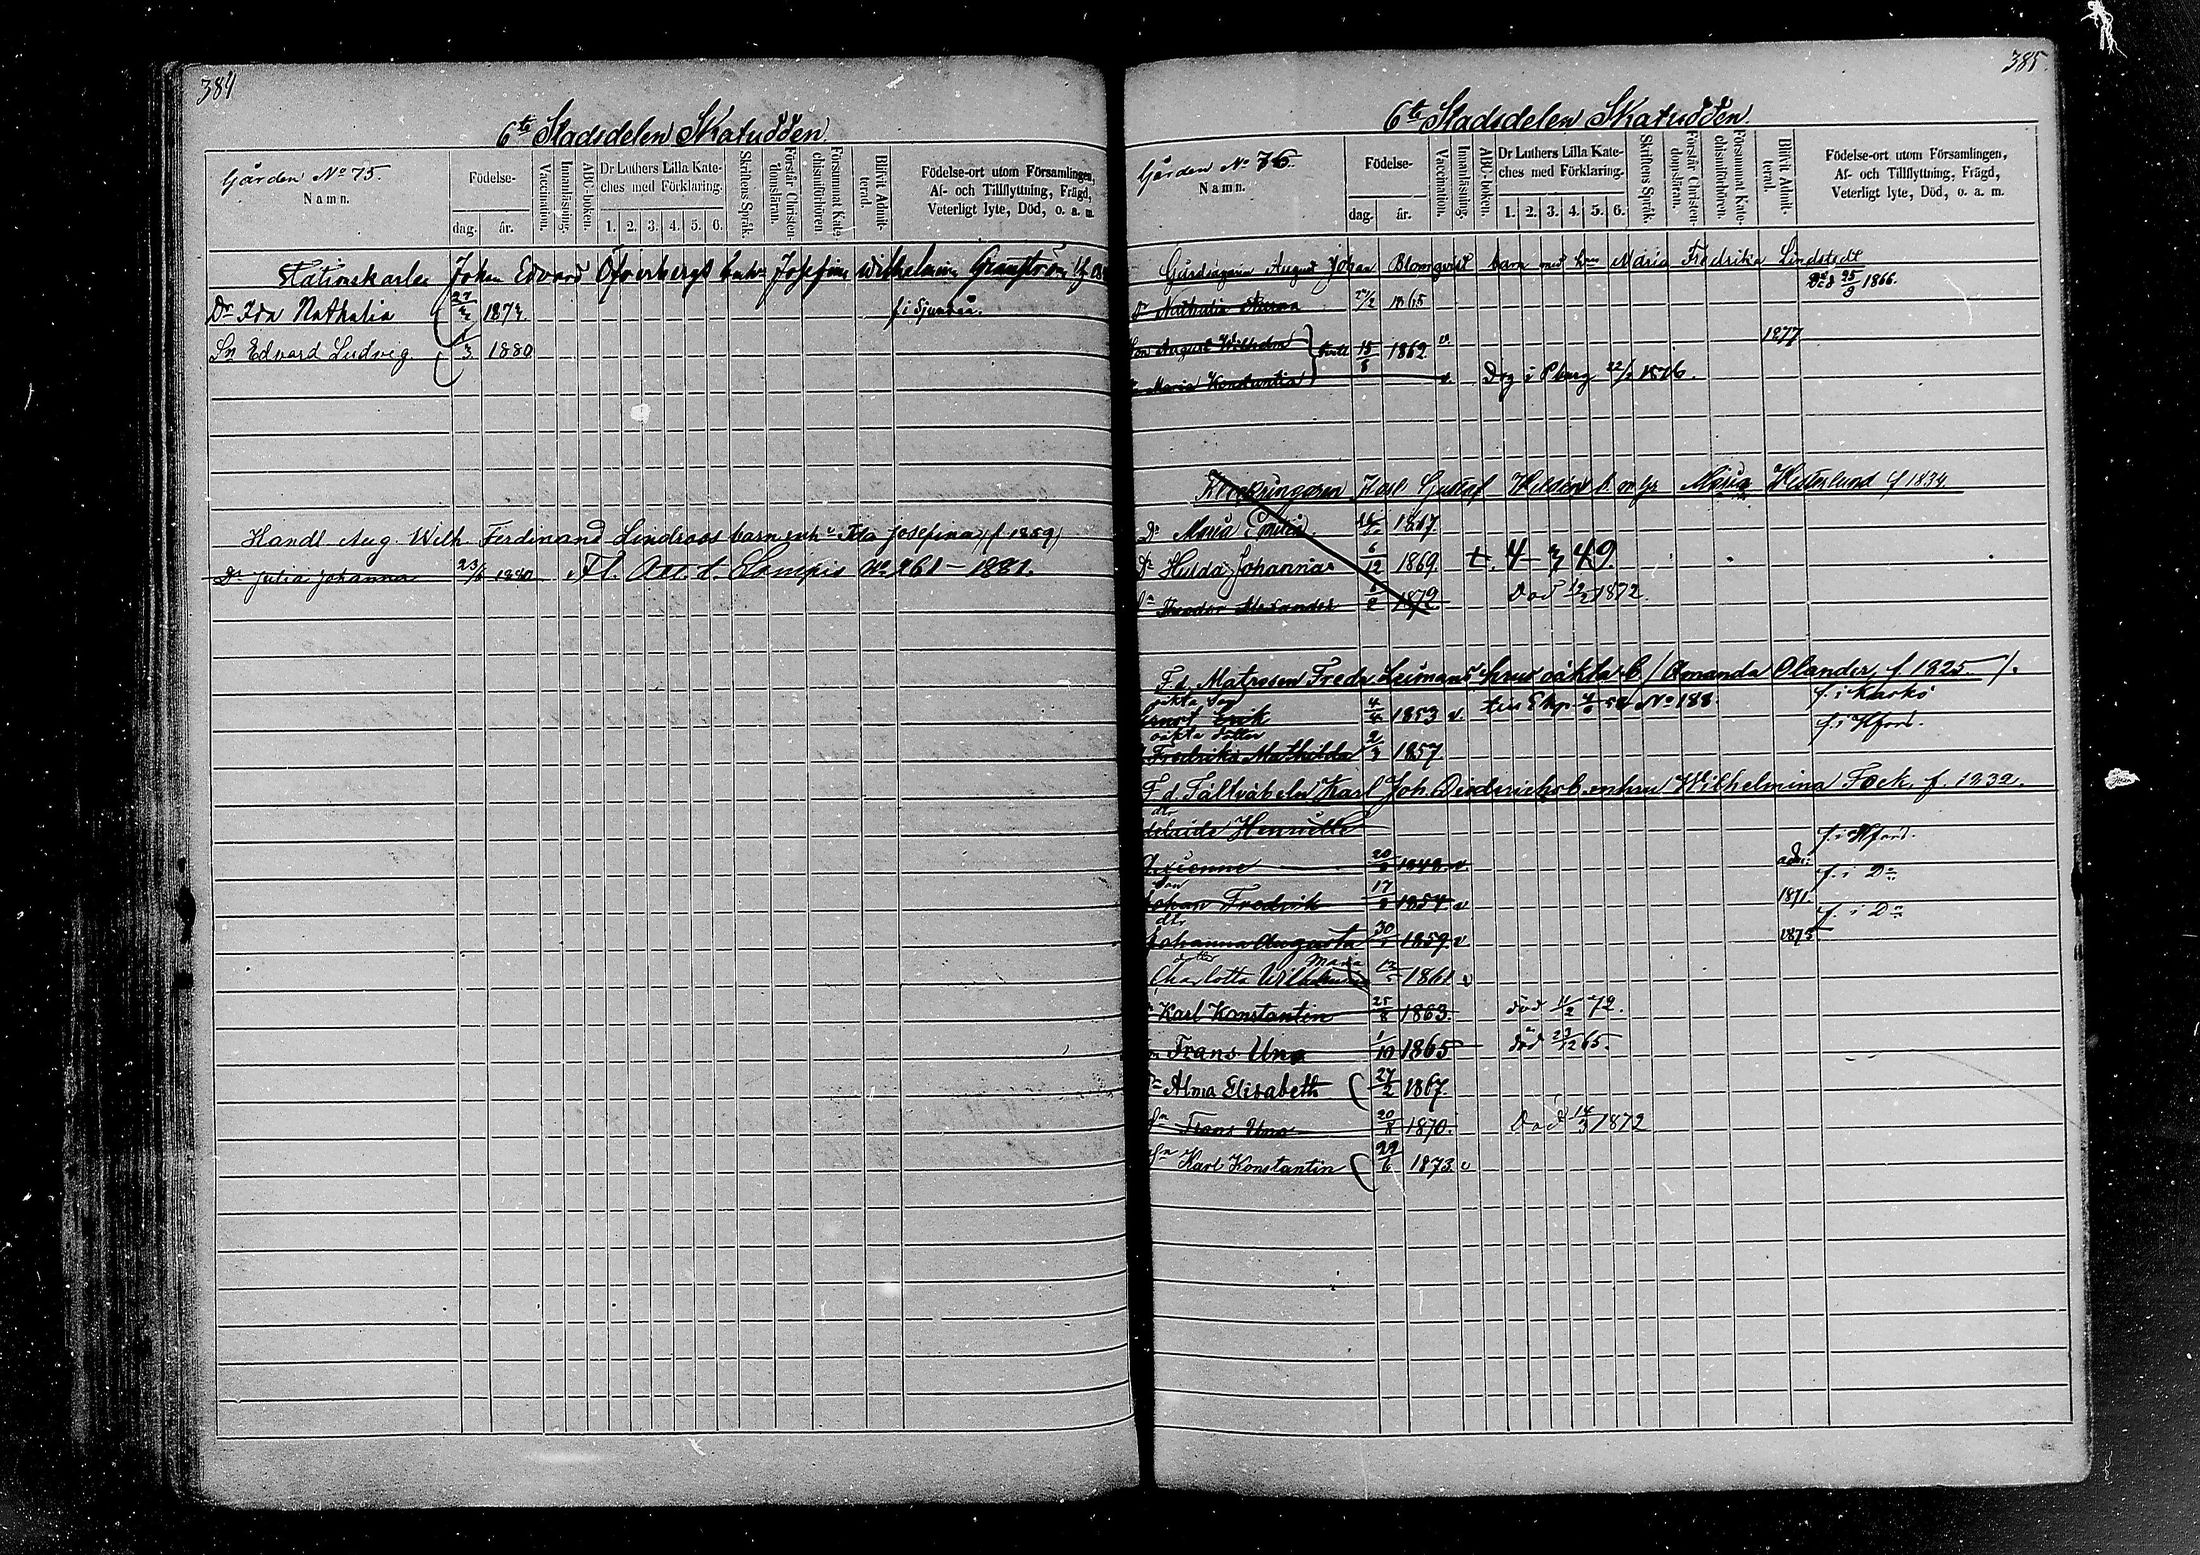 384
6te Stadsdelen Skatudden.
Gården No 75.
Namn.
Födelse-
dag. år.
Vaccination.
Innanläsning.
ABC-boken.
Dr Luthers Lilla Kate-
ches med Förklaring.
1. 2. 3. 4. 5. 6.
Skriftens Språk.
Förstår Christen-
domsläran.
Försummat Kate-
chismiförhören
Blifvit Admit-
terad.
Födelse-ort utom Församlingen,
Af- och Tillflyttning, Frägd,
Veterligt lyte, Död, o. a. m.
Stationskarlen Johan Edvard Öfverbergs Josefina Wilhelmina Granström
Dr Ida Nathalia 27/2 1874. f. i Sjundeå.
Sn Edvard Ludvig 1/3 1880
Handl Aug. Wilh Ferdinand Lindroos barn m h u Ida Josefina (f. 1859)
Dr Julia Johanna 23/ 1880 Fl. Att. t. No 261 - 1881.
385
6te Stadsdelen Skatudden.
Gården No 76.
Namn.
Födelse-
dag. år.
Vaccination.
Innanläsning.
ABC-boken.
Dr Luthers Lilla Kate-
ches med Förklaring.
1. 2. 3. 4. 5. 6.
Skriftens Språk.
Förstår Christen-
domsläran.
Försummat Kate-
chismiförhören.
Blifvit Admit-
terad.
Födelse-ort utom Församlingen,
Af- och Tillflyttning, Frägd,
Veterligt lyte, Död, o. a. m.
Gårdsägaren August Johan Blomqvist barn med hu Maria Fredrika Lindstedt
Död 25/8 1866.
Dr Nathalia 1865
Son August Wilhelm 15/8 1862 v 1877
Dr Maria Konstantia v. Dog i Pburg 22/2 1876.
Klockringaren Karl Gustaf Maria Westerlund f 1834
Dr Maria Emilia 1867
Dr Hulda Johanna 6/12 1869 t. 4 - 3 49.
Sn Theodor Alexander 1872 Död 12/2 1872
F. d. Matrosen Fredr Leimans hrus oäkta b (Amanda Olander f. 1825).
oäkta Son
Ernst Erik 4/4 1853 v. No 188. f. i Karkö
oäkta dotter
Fredrika Mathilda 2/3 1857 f. i Hfors.
F. d. Fältväbeln Karl Joh. Diedrichs b. m hu Wilhelmina Fock f. 1832.
dtr
Adelaide Henriette f. i Hfors.
20 1848 v. adm: f. i Do
Son
Johan Fredrik 17 1854 v 1871 f. i Do
dtr
Johanna Augusta 30 1859 v 1875
dotter
Charlotta Wilhelmina Maria 1861 v
Karl Konstantin 25/8 1863 död 11/2 72.
Frans Uno 1/10 1865 död 23/12 65.
Dr Alma Elisabeth 27/2 1867.
Sn Frans Uno 20/8 1870. Död 14/3 1872
Sn Karl Konstantin 22/6 1873. v